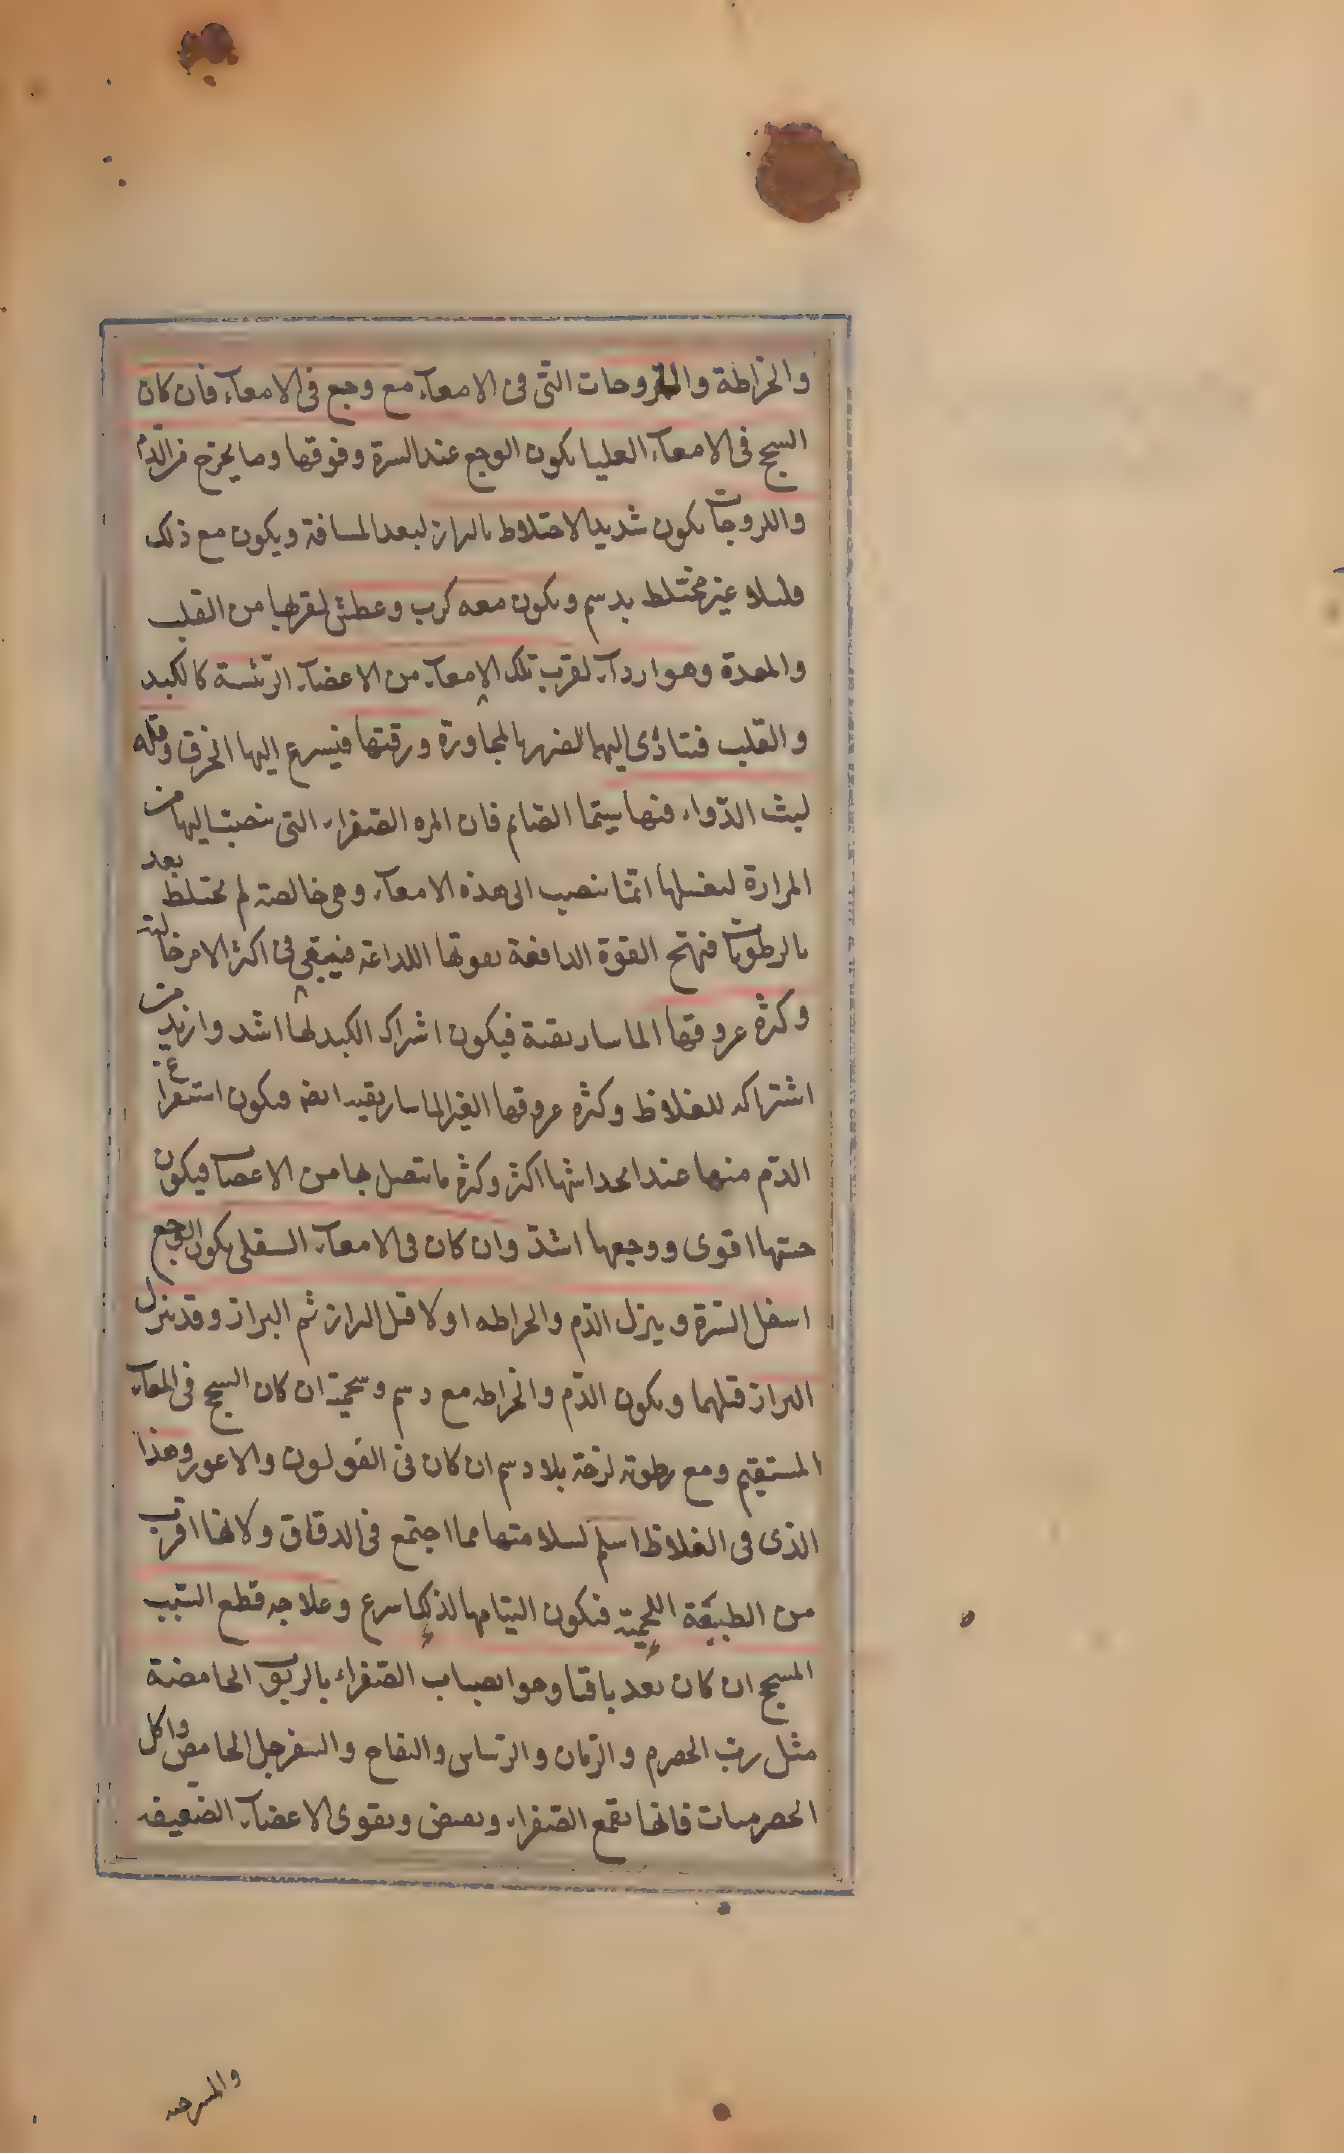 والخراطة واللزوجات التى فى الامعآء مع وجع فى الامعآء فان كان
السحج فى الامعآء العليا يكون الوجع عند السرة وفوقها وما يخرج من الدّم
واللزوجات يكون شديد الاختلاط بالبراز لبعد المسافة ويكون مع ذلك
قليلا غير مختلط بدسم ويكون معه كرب وعطش لقربها من القلب
والمعدة وهو اردآء لقرب تلك الامعآء من الاعضآء الرّئسة كالكبد
والقلب فتتادّى اليهما الضرر بالمجاورة ورقتها فيسرع اليها الخرق وقلة
لبث الدّواء فيها سيّما الصّايم فان المره الصّفراء التى تنصبّ اليها من
المرارة لغسلها انّما تنصب الى هذه الامعآء وهى خالصة لم تختلط بعد
بالرطوبات فتهيج القوة الدافعة بقوتها اللداعة فيبقى فى اكثر الامر خالية
وكثرة عروقها الماساريقية فيكون اشراك الكبد لها اشد وازيد من
اشتراكه للغلاظ وكثره عروقها الغير الماساريقيه ايضا فيكون استفراغ
الدّم منها عند انحداشها اكثر وكثرة ما يتصل بها من الاعصاب فيكون
حسّها اقوى ووجعها اشدّ وان كان فى الامعآء السفلى يكون الوجع
اسفل السّرة وينزل الدّم والخراطه اولا قبل البراز ثم البراز وقد ينزل
البراز قبلهما ويكون الدّم والخراطه مع دسم وشحميّة ان كان السحج فى المعآء
المستقيم ومع رطوبة لزجة بلا دسم ان كان فى القولون والاعور وهذا
الذى فى الغلاظ اسلم لسلامتها مما اجتمع فى الدقاق ولانها اقرب
من الطبيعة اللحميّة فيكون التيامها لذلك اسرع وعلاجه قطع السّبب
المسحج ان كان بعد باقيا وهو انصباب الصّفراء بالربوب الحامضة
مثل ربّ الحصرم والرّمان والريباس والتفاح والسفرجل الحامض واكل
الحصرميات فانها تقمع الصّفراء وتقبض وتقوى الاعضآء الضّعيفه